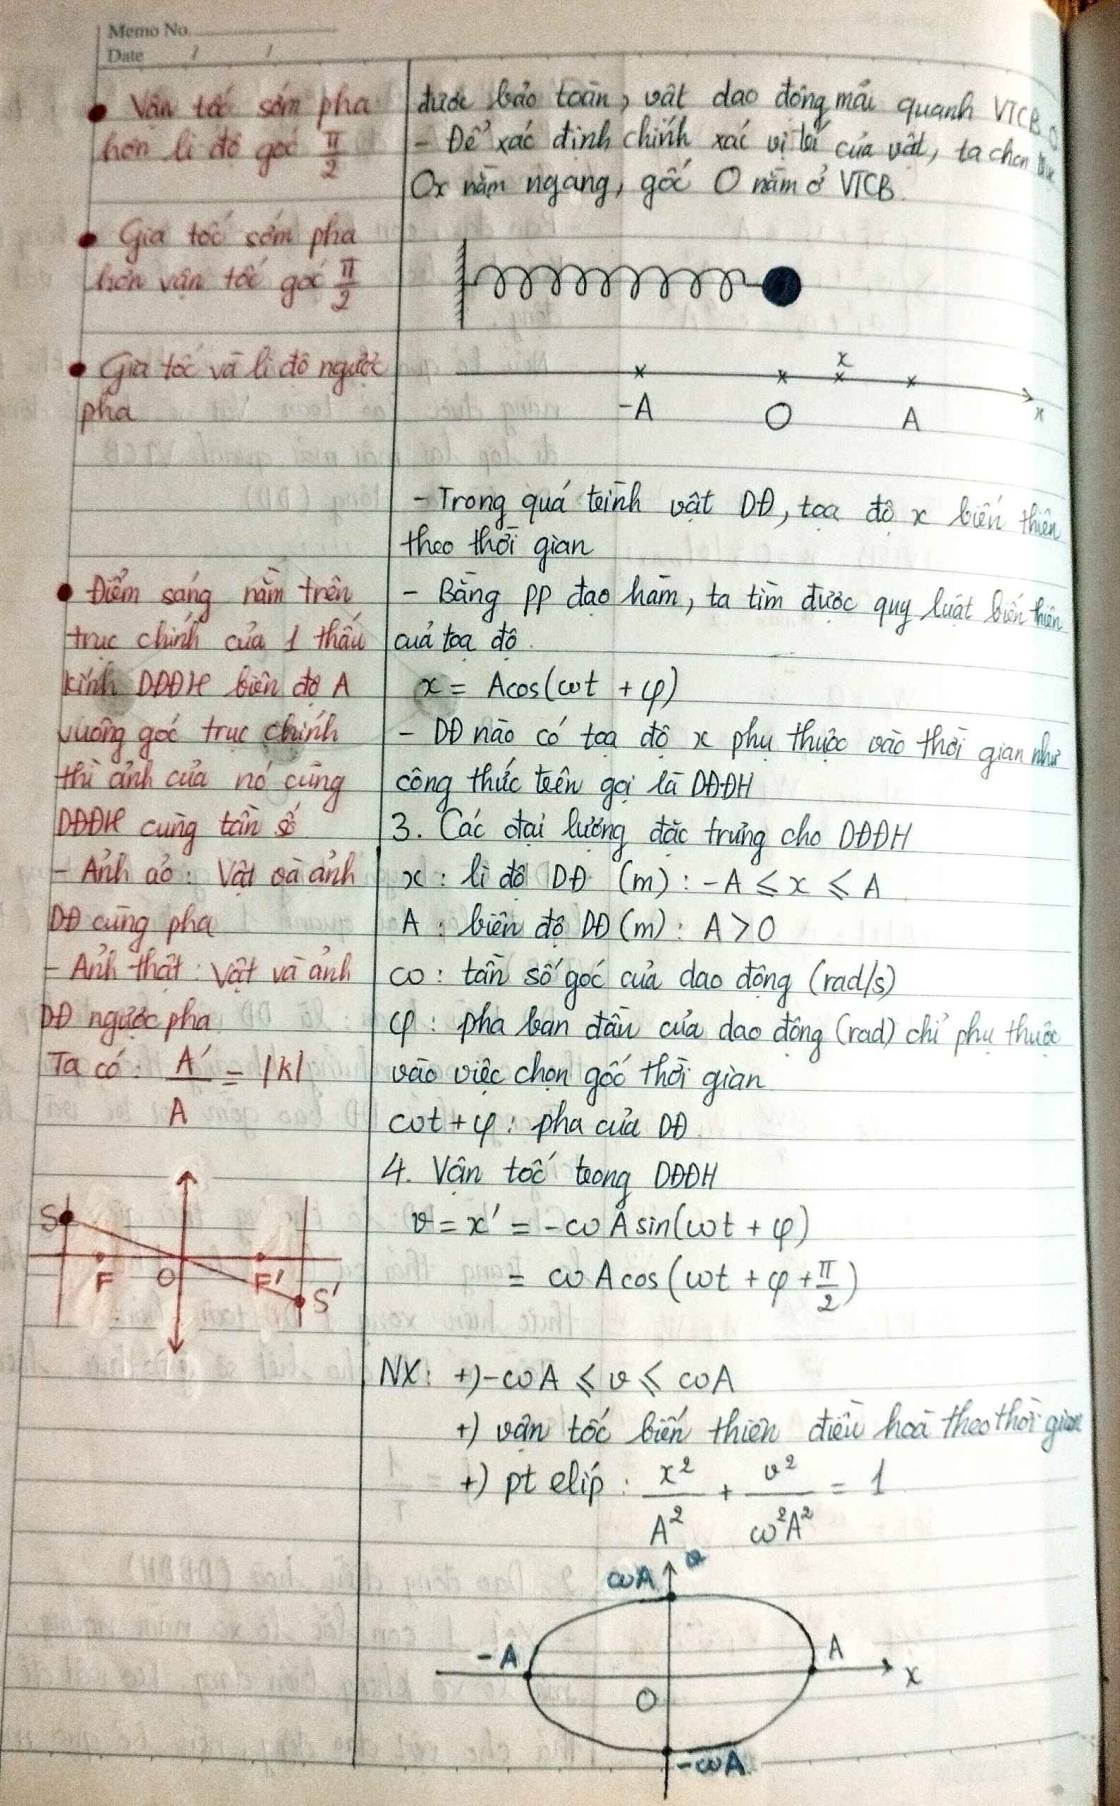 Memo No.
Date / /
• Vận tốc sớm pha
hơn li độ góc π/2
• Gia tốc sớm pha
hơn vận tốc góc π/2
• Gia tốc và li độ ngược
pha
• Điểm sáng nằm trên
trục chính của 1 thấu
kính DĐĐH biên độ A
vuông góc trục chính
thì ảnh của nó cũng
DĐĐH cùng tần số
- Ảnh ảo: Vật và ảnh
DĐ cùng pha
- Ảnh thật: Vật và ảnh
DĐ ngược pha
Ta có: A'/A = |k|
S
F O F' S'
được bảo toàn, vật dao động mãi quanh VTCB O
- Để xác định chính xác vị trí của vật, ta chọn trục
Ox nằm ngang, gốc O nằm ở VTCB.
x
-A O A x
- Trong quá trình vật DĐ, tọa độ x biến thiên
theo thời gian
- Bằng PP đạo hàm, ta tìm được quy luật biến thiên
của tọa độ.
x = Acos(ωt + φ)
- DĐ nào có tọa độ x phụ thuộc vào thời gian như
công thức trên gọi là DĐĐH
3. Các đại lượng đặc trưng cho DĐĐH
x: li độ DĐ (m): -A ≤ x ≤ A
A: biên độ DĐ (m): A > 0
ω: tần số góc của dao động (rad/s)
φ: pha ban đầu của dao động (rad) chỉ phụ thuộc
vào việc chọn gốc thời gian
ωt + φ: pha của DĐ
4. Vận tốc trong DĐĐH
v = x' = -ωA sin(ωt + φ)
= ωA cos(ωt + φ + π/2)
NX: +) -ωA ≤ v ≤ ωA
+) vận tốc biến thiên điều hoà theo thời gian
+) pt elip: x²/A² + v²/ω²A² = 1
ωA v
-A A x
O
-ωA